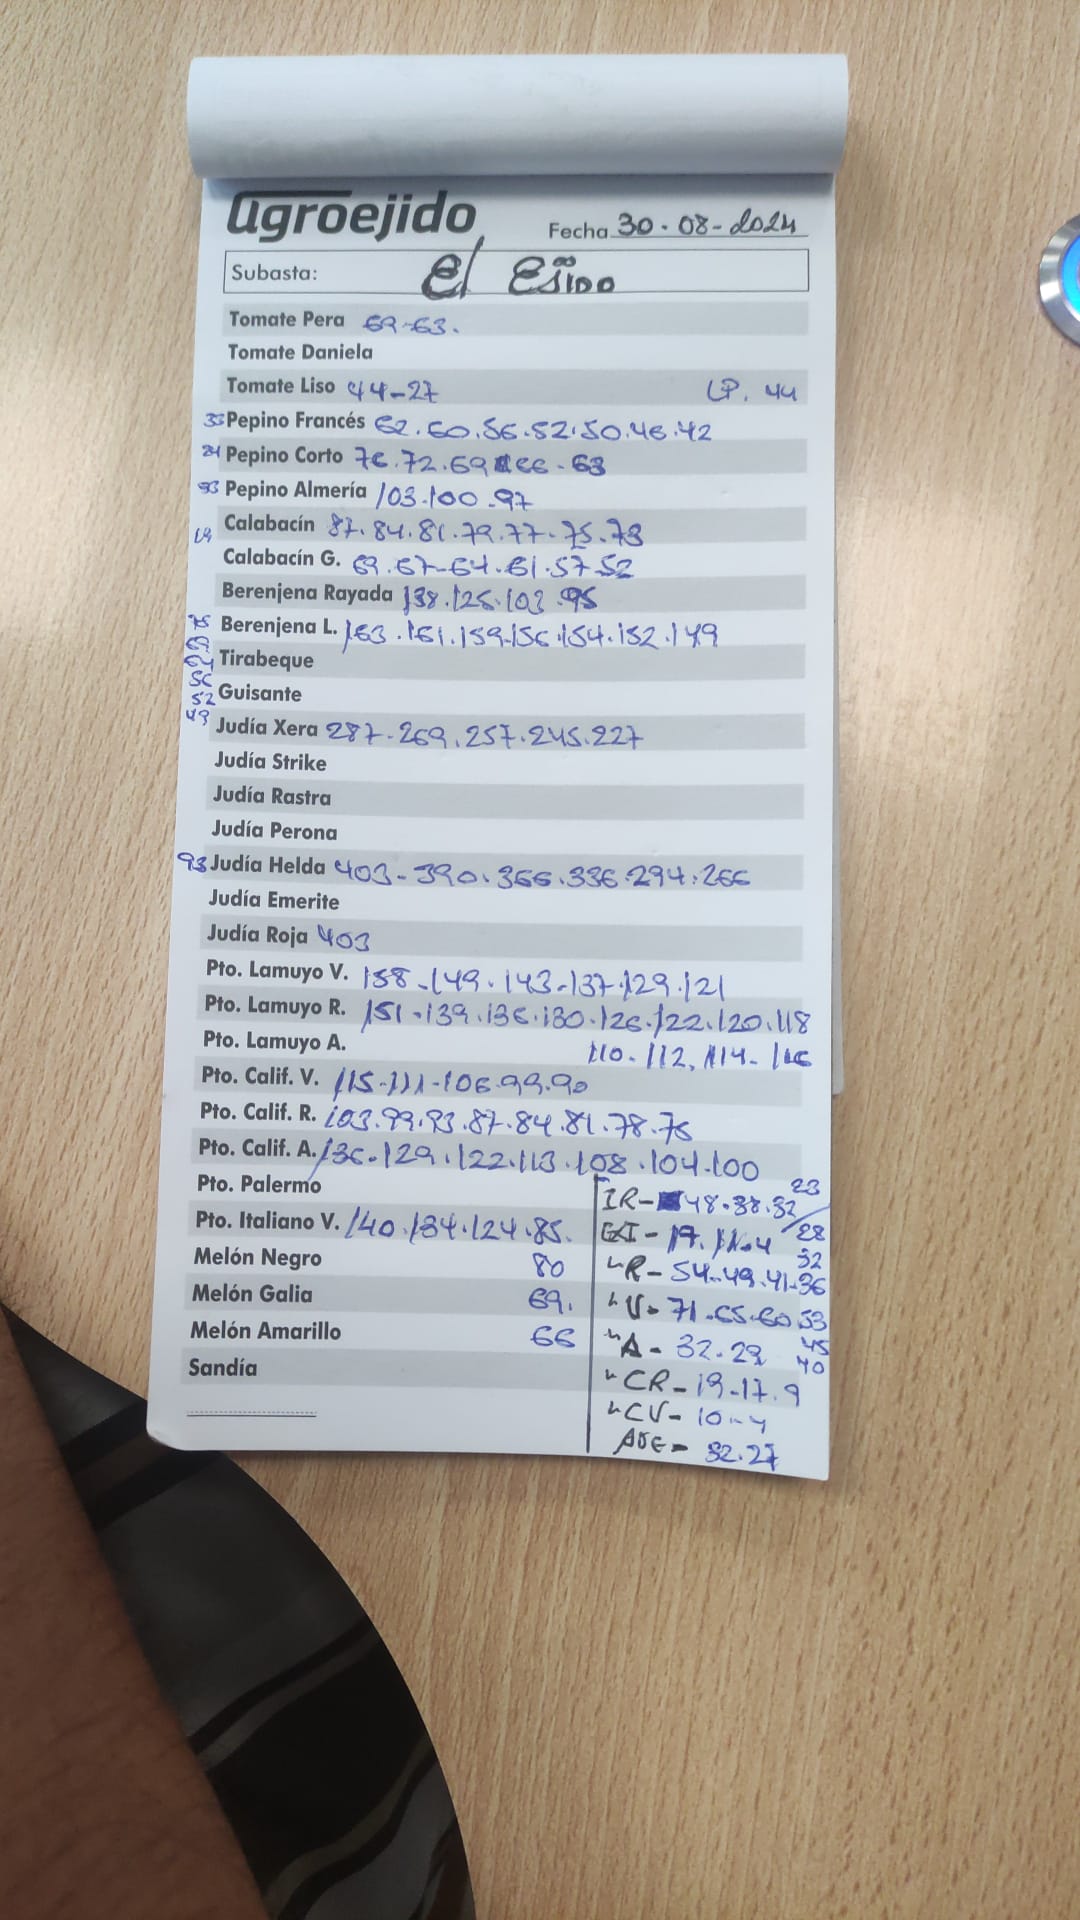 agroejido Fecha 30-08-2024
Subasta: El Ejido
Tomate Pera 69-63.
Tomate Daniela
Tomate Liso 44-27 LP. 44
Pepino Francés 62.60.56.52.50.46.42
Pepino Corto 76.72.69 66-63
Pepino Almería 103.100.97
Calabacín 87.84.81.79.77-75.73
Calabacín G. 69.67-64.61.57.52
Berenjena Rayada 138.125.103.95
75 Berenjena L. 163.161.159.156.154.152.149
69
64 Tirabeque
56
52 Guisante
49
Judía Xera 287-269.257.245.227
Judía Strike
Judía Rastra
Judía Perona
93 Judía Helda 403-390.366.336.294.266
Judía Emerite
Judía Roja 403
Pto. Lamuyo V. 158-149.143-137.129.121
Pto. Lamuyo R. 151-139.136.130.126.122.120.118
Pto. Lamuyo A. 110-112.114-116
Pto. Calif. V. 115-111-106.99.90
Pto. Calif. R. 103.99.93.87.84.81.78.75
Pto. Calif. A. 136.129.122.113.108.104.100
Pto. Palermo
Pto. Italiano V. 140.134.124.85.
Melón Negro 80
Melón Galia 69.
Melón Amarillo 66
Sandía
IR- 48.38.32 23
EXI- 17.11.4 28
32
"R- 54-49.41-36
"V- 71.65.60 53
"A- 32.29 45
40
"CR-19-17.9
"CV- 10-4
32.27